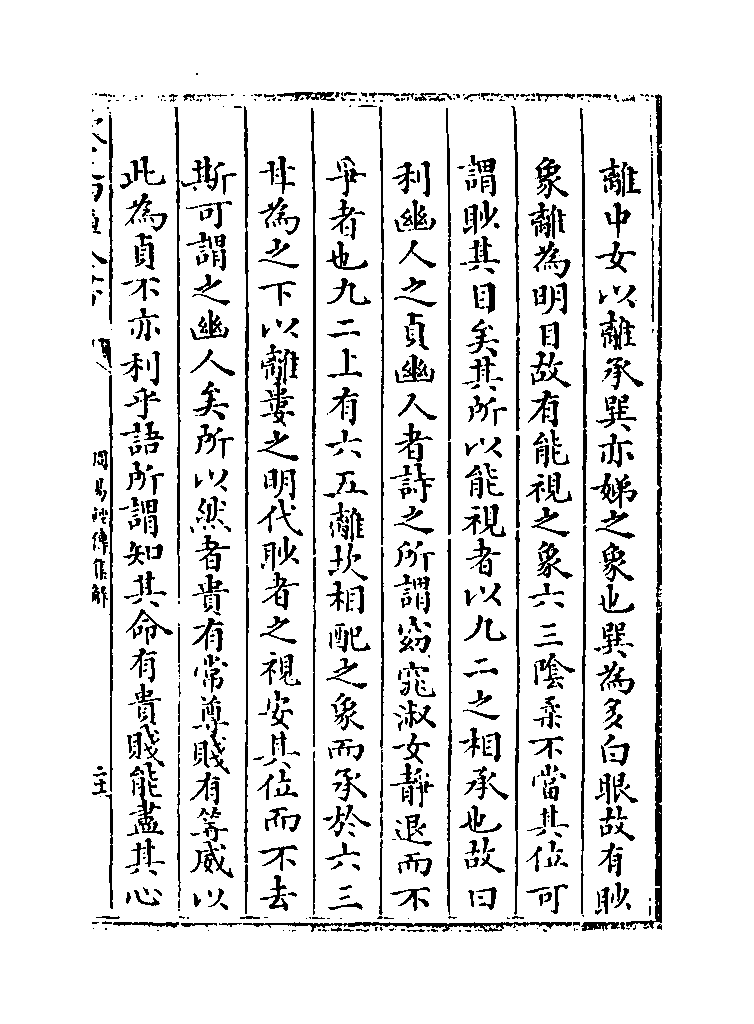 離中女以離承巽亦娣之象也巽為多白眼故有眇
象離為明目故有能視之象六三陰柔不當其位可
謂眇其目矣其所以能視者以九二之相承也故曰
利幽人之貞幽人者詩之所謂窈窕淑女靜退而不
爭者也九二上有六五離坎相配之象而承於六三
甘為之下以離婁之明代眇者之視安其位而不去
斯可謂之幽人矣所以然者貴有常尊賤有等威以
此為貞不亦利乎語所謂知其命有貴賤能盡其心
周易經傳集解